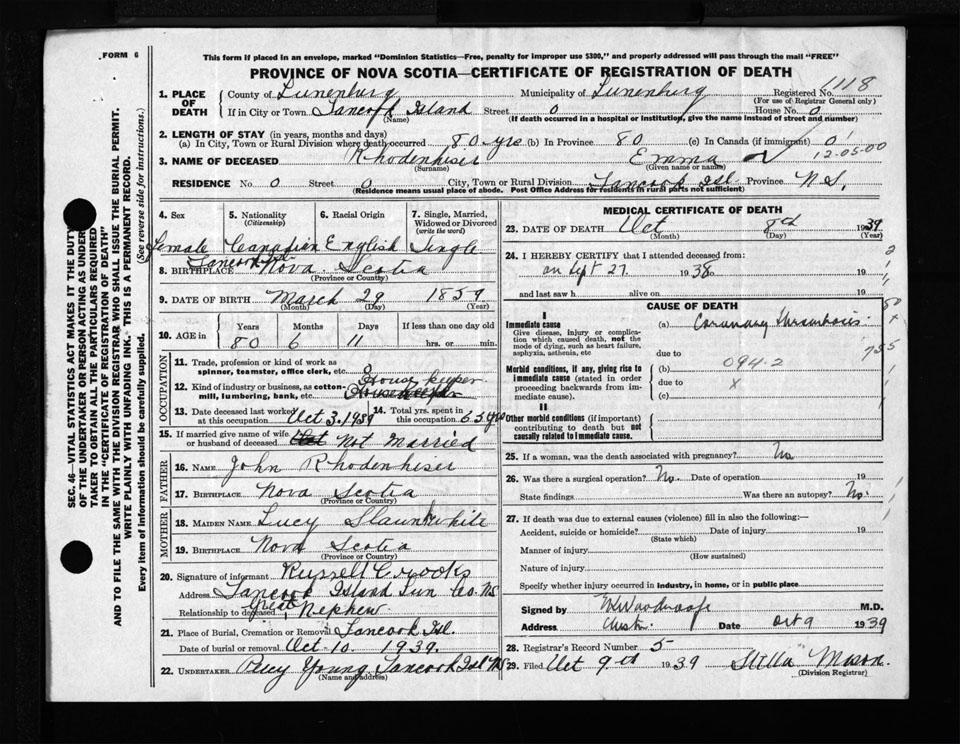 FORM 6
This form if placed in an envelope, marked "Dominion Statistics—Free, penalty for improper use $300," and properly addressed will pass through the mail "FREE"
PROVINCE OF NOVA SCOTIA—CERTIFICATE OF REGISTRATION OF DEATH
1. PLACE OF DEATH County of Lunenburg Municipality of Lunenburg Registered No. 1118
(For use of Registrar General only)
If in City or Town Tancook Island Street 0 House No. 0
(Name) (If death occurred in a hospital or institution, give the name instead of street and number)
2. LENGTH OF STAY (in years, months and days)
(a) In City, Town or Rural Division where death occurred 80 yrs (b) In Province 80 (c) In Canada (if immigrant) 0
12-05-00
3. NAME OF DECEASED Rhodenhiser Emma
(Surname) (Given name or names)
RESIDENCE No 0 Street 0 City, Town or Rural Division Tancook Isl Province N.S.
(Residence means usual place of abode. Post Office Address for residents in rural parts not sufficient)
4. Sex 5. Nationality (Citizenship) 6. Racial Origin 7. Single, Married, Widowed or Divorced (write the word)
Female Canadian English Single
Tancook Isl
8. BIRTHPLACE Nova Scotia
(Province or Country)
9. DATE OF BIRTH March 29 1859
(Month) (Day) (Year)
10. AGE in Years Months Days If less than one day
80 6 11 hrs. or min.
OCCUPATION
11. Trade, profession or kind of work as spinner, teamster, office clerk, etc. 0
12. Kind of industry or business, as cotton-mill, lumbering, bank, etc. House keeper
13. Date deceased last worked at this occupation Oct 3. 1939 14. Total yrs. spent in this occupation 65 yrs
15. If married give name of wife or husband of deceased Not Married
FATHER
16. NAME John Rhodenhiser
17. BIRTHPLACE Nova Scotia
(Province or Country)
MOTHER
18. MAIDEN NAME Lucy Slaunwhite
19. BIRTHPLACE Nova Scotia
(Province or Country)
20. Signature of informant Russell Crooks
Address Tancook Island Lun Co. NS
Relationship to deceased Great Nephew
21. Place of Burial, Cremation or Removal Tancook Isl.
Date of burial or removal Oct 10. 1939.
22. UNDERTAKER Percy Young Tancook Isl NS
(Name and address)
MEDICAL CERTIFICATE OF DEATH
23. DATE OF DEATH Oct 8th 1939
(Month) (Day) (Year)
24. I HEREBY CERTIFY that I attended deceased from:
on Sept 27 1938 to 19
and last saw h alive on 19
CAUSE OF DEATH
I
Immediate cause (a) Coronary Thrombosis
Give disease, injury or complication which caused death, not the mode of dying, such as heart failure, asphyxia, asthenia, etc
due to
Morbid conditions, if any, giving rise to immediate cause (stated in order proceeding backwards from immediate cause).
(b) 094-2
due to x
(c)
II
Other morbid conditions (if important) contributing to death but not causally related to immediate cause.
25. If a woman, was the death associated with pregnancy? No
26. Was there a surgical operation? No. Date of operation 19
State findings Was there an autopsy? No.
27. If death was due to external causes (violence) fill in also the following:—
Accident, suicide or homicide? Date of injury 19
(State which)
Manner of injury
(How sustained)
Nature of injury
Specify whether injury occurred in industry, in home, or in public place
Signed by M.D.
Address Date Oct 9 1939
28. Registrar's Record Number 5
29. Filed Oct 9th 1939 Stilla Mason.
(Division Registrar)
SEC. 46—VITAL STATISTICS ACT MAKES IT THE DUTY
OF THE UNDERTAKER OR PERSON ACTING AS UNDERTAKER TO OBTAIN ALL THE PARTICULARS REQUIRED
IN THE "CERTIFICATE OF REGISTRATION OF DEATH"
AND TO FILE THE SAME WITH THE DIVISION REGISTRAR WHO SHALL ISSUE THE BURIAL PERMIT.
WRITE PLAINLY WITH UNFADING INK. THIS IS A PERMANENT RECORD.
Every item of information should be carefully supplied. (See reverse side for instructions.)